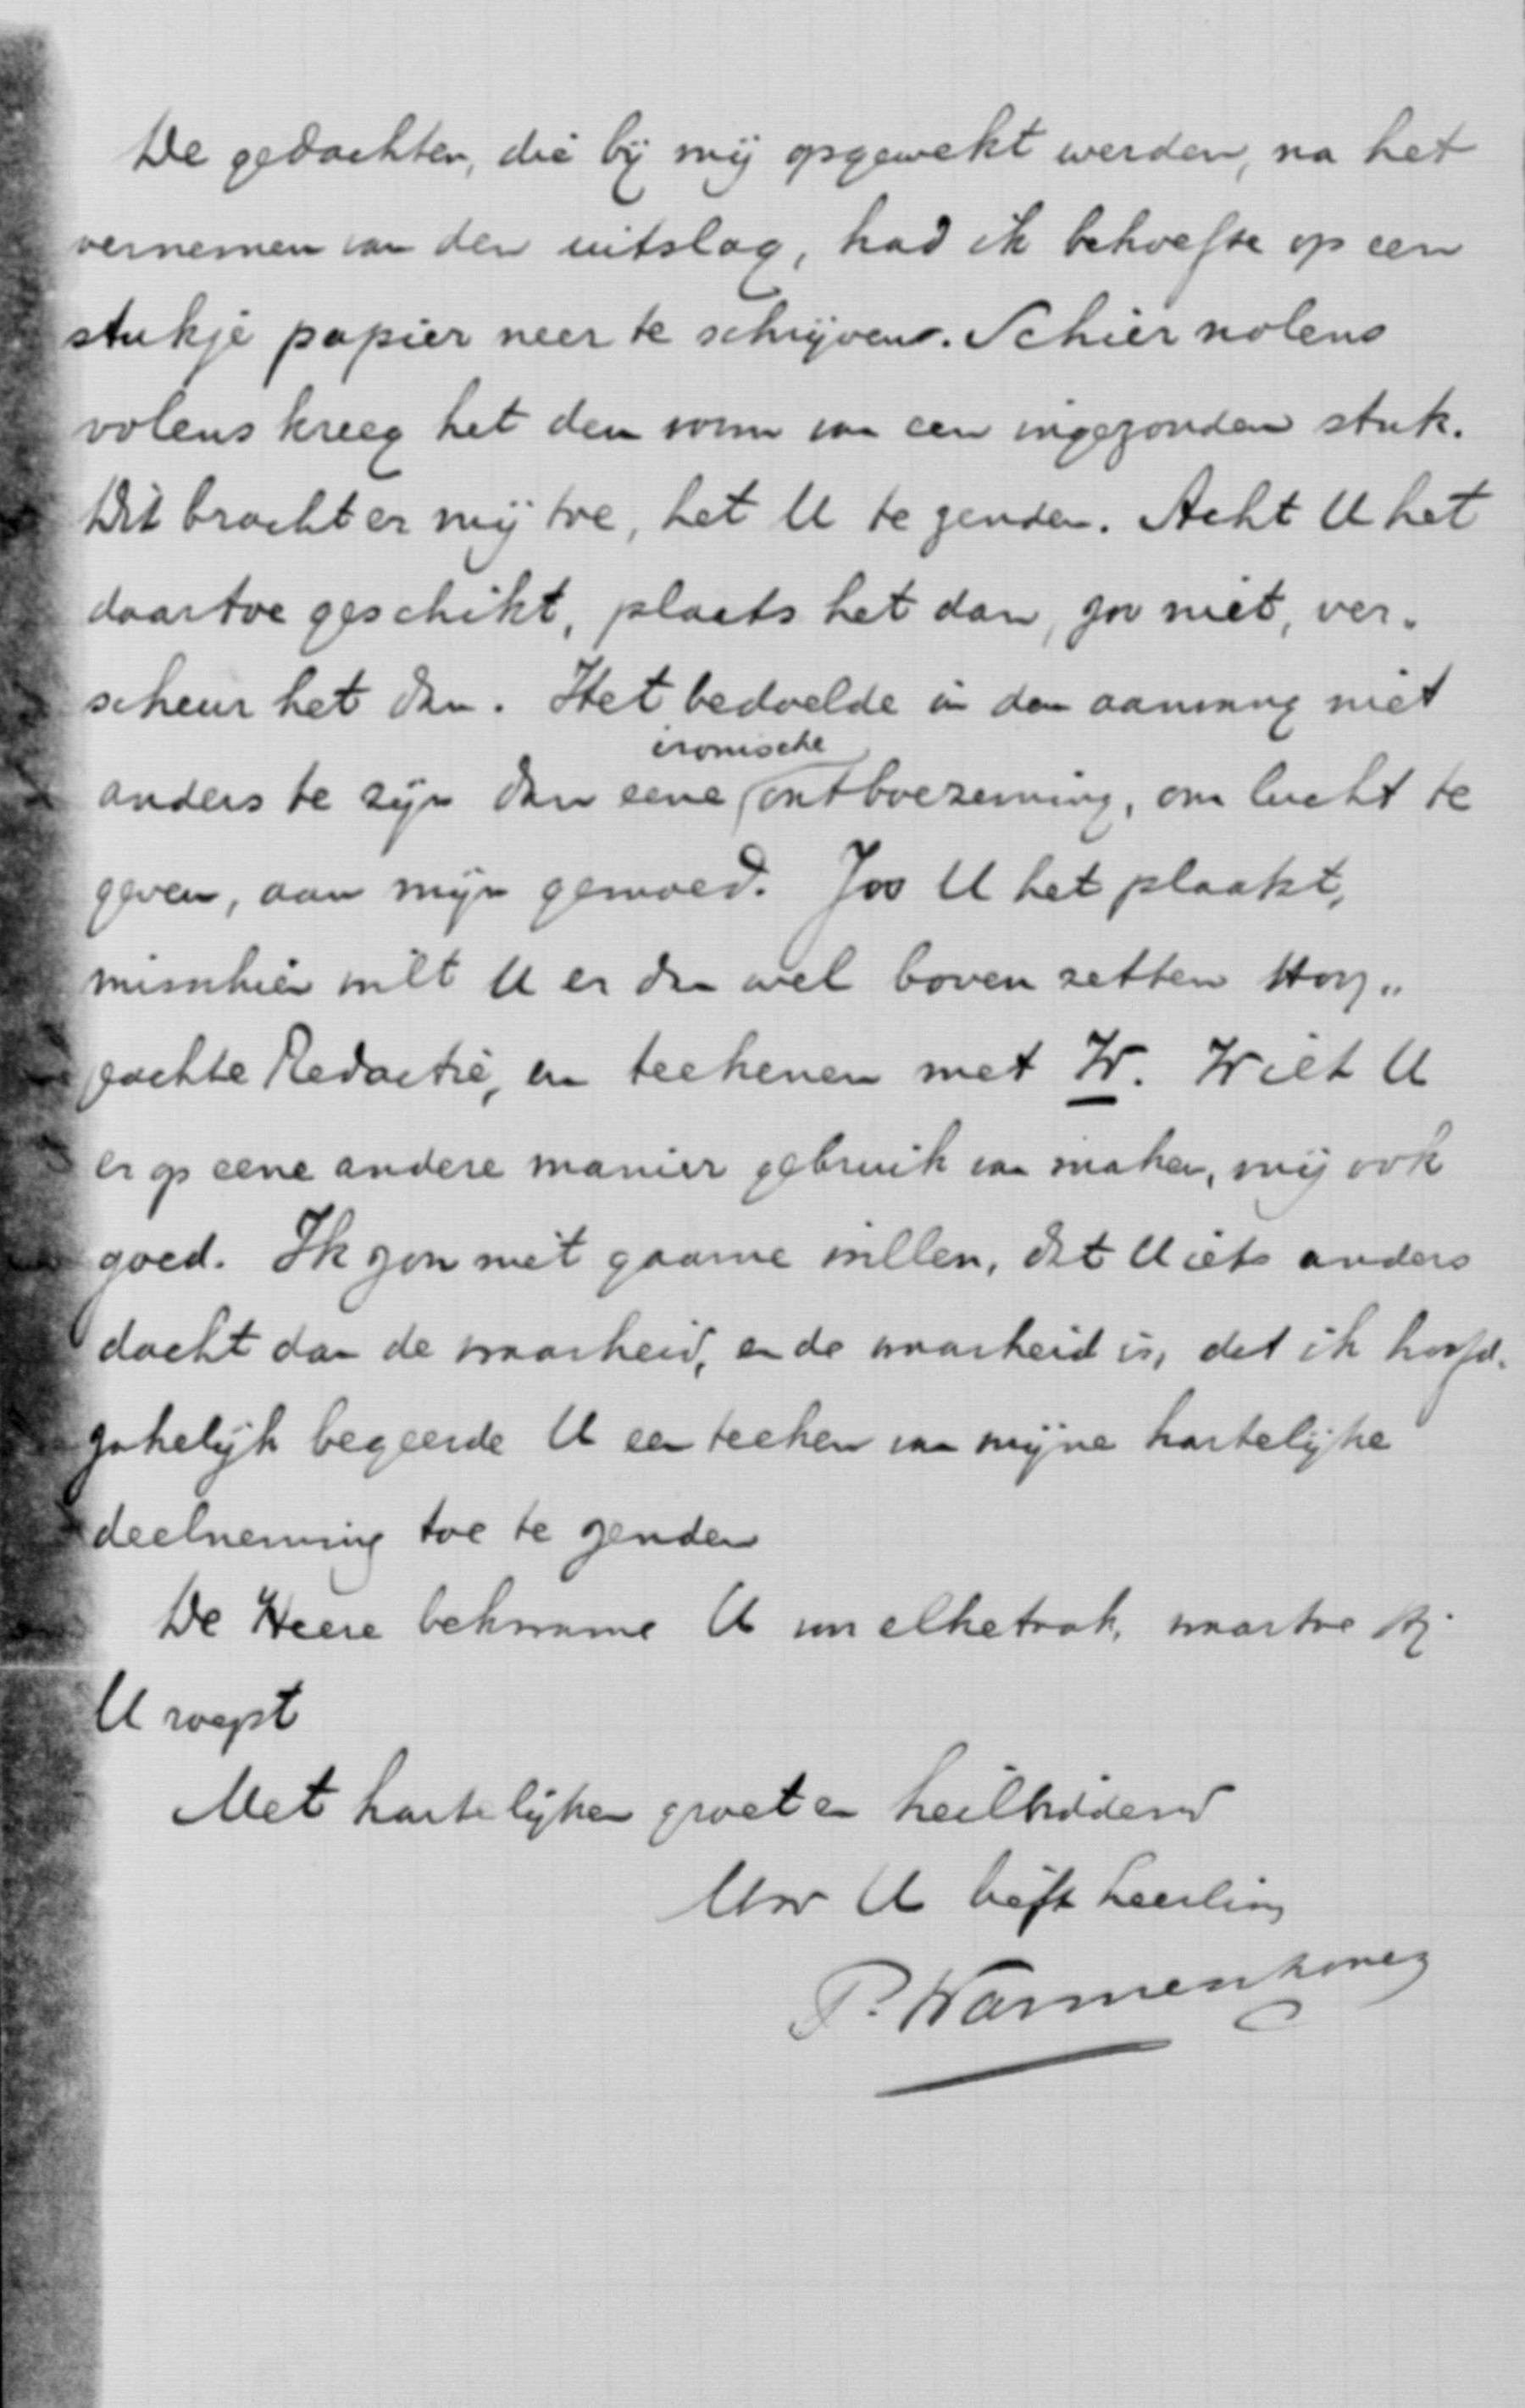 De gedachten, die bij mij opgewekt werden, na het
vernemen van den uitslag, had ik behoefte op een
stukje papier neer te schrijven. Schier nolens
volens kreeg het den vorm van een ingezonden stuk.
Dit bracht er mij toe, het U te zenden. Acht U het
daartoe geschikt, plaats het dan, zoo niet, ver-
scheur het dan. Het bedoelde in den aanvang niet
anders te zijn dan eene ironische ontboezeming, om lucht te
geven, aan mijn gemoed. Zoo U het plaatst,
misschien wilt U er dan wel boven zetten Hoog-
geachte Redactie, en teekenen met W. Wilt U
er op eene andere manier gebruik van maken, mij ook
goed. Ik zou niet gaarne willen, dat U iets anders
dacht dan de waarheid, en de waarheid is, dat ik hoofd-
zakelijk begeerde U een teeken van mijne hartelijke
deelneming toe te zenden
De Heere bekwame U voor elke taak, waartoe Hij
U roept
Met hartelijken groet en heilbiddend
Uw U liefh. Leerling
P. Warmenhoven